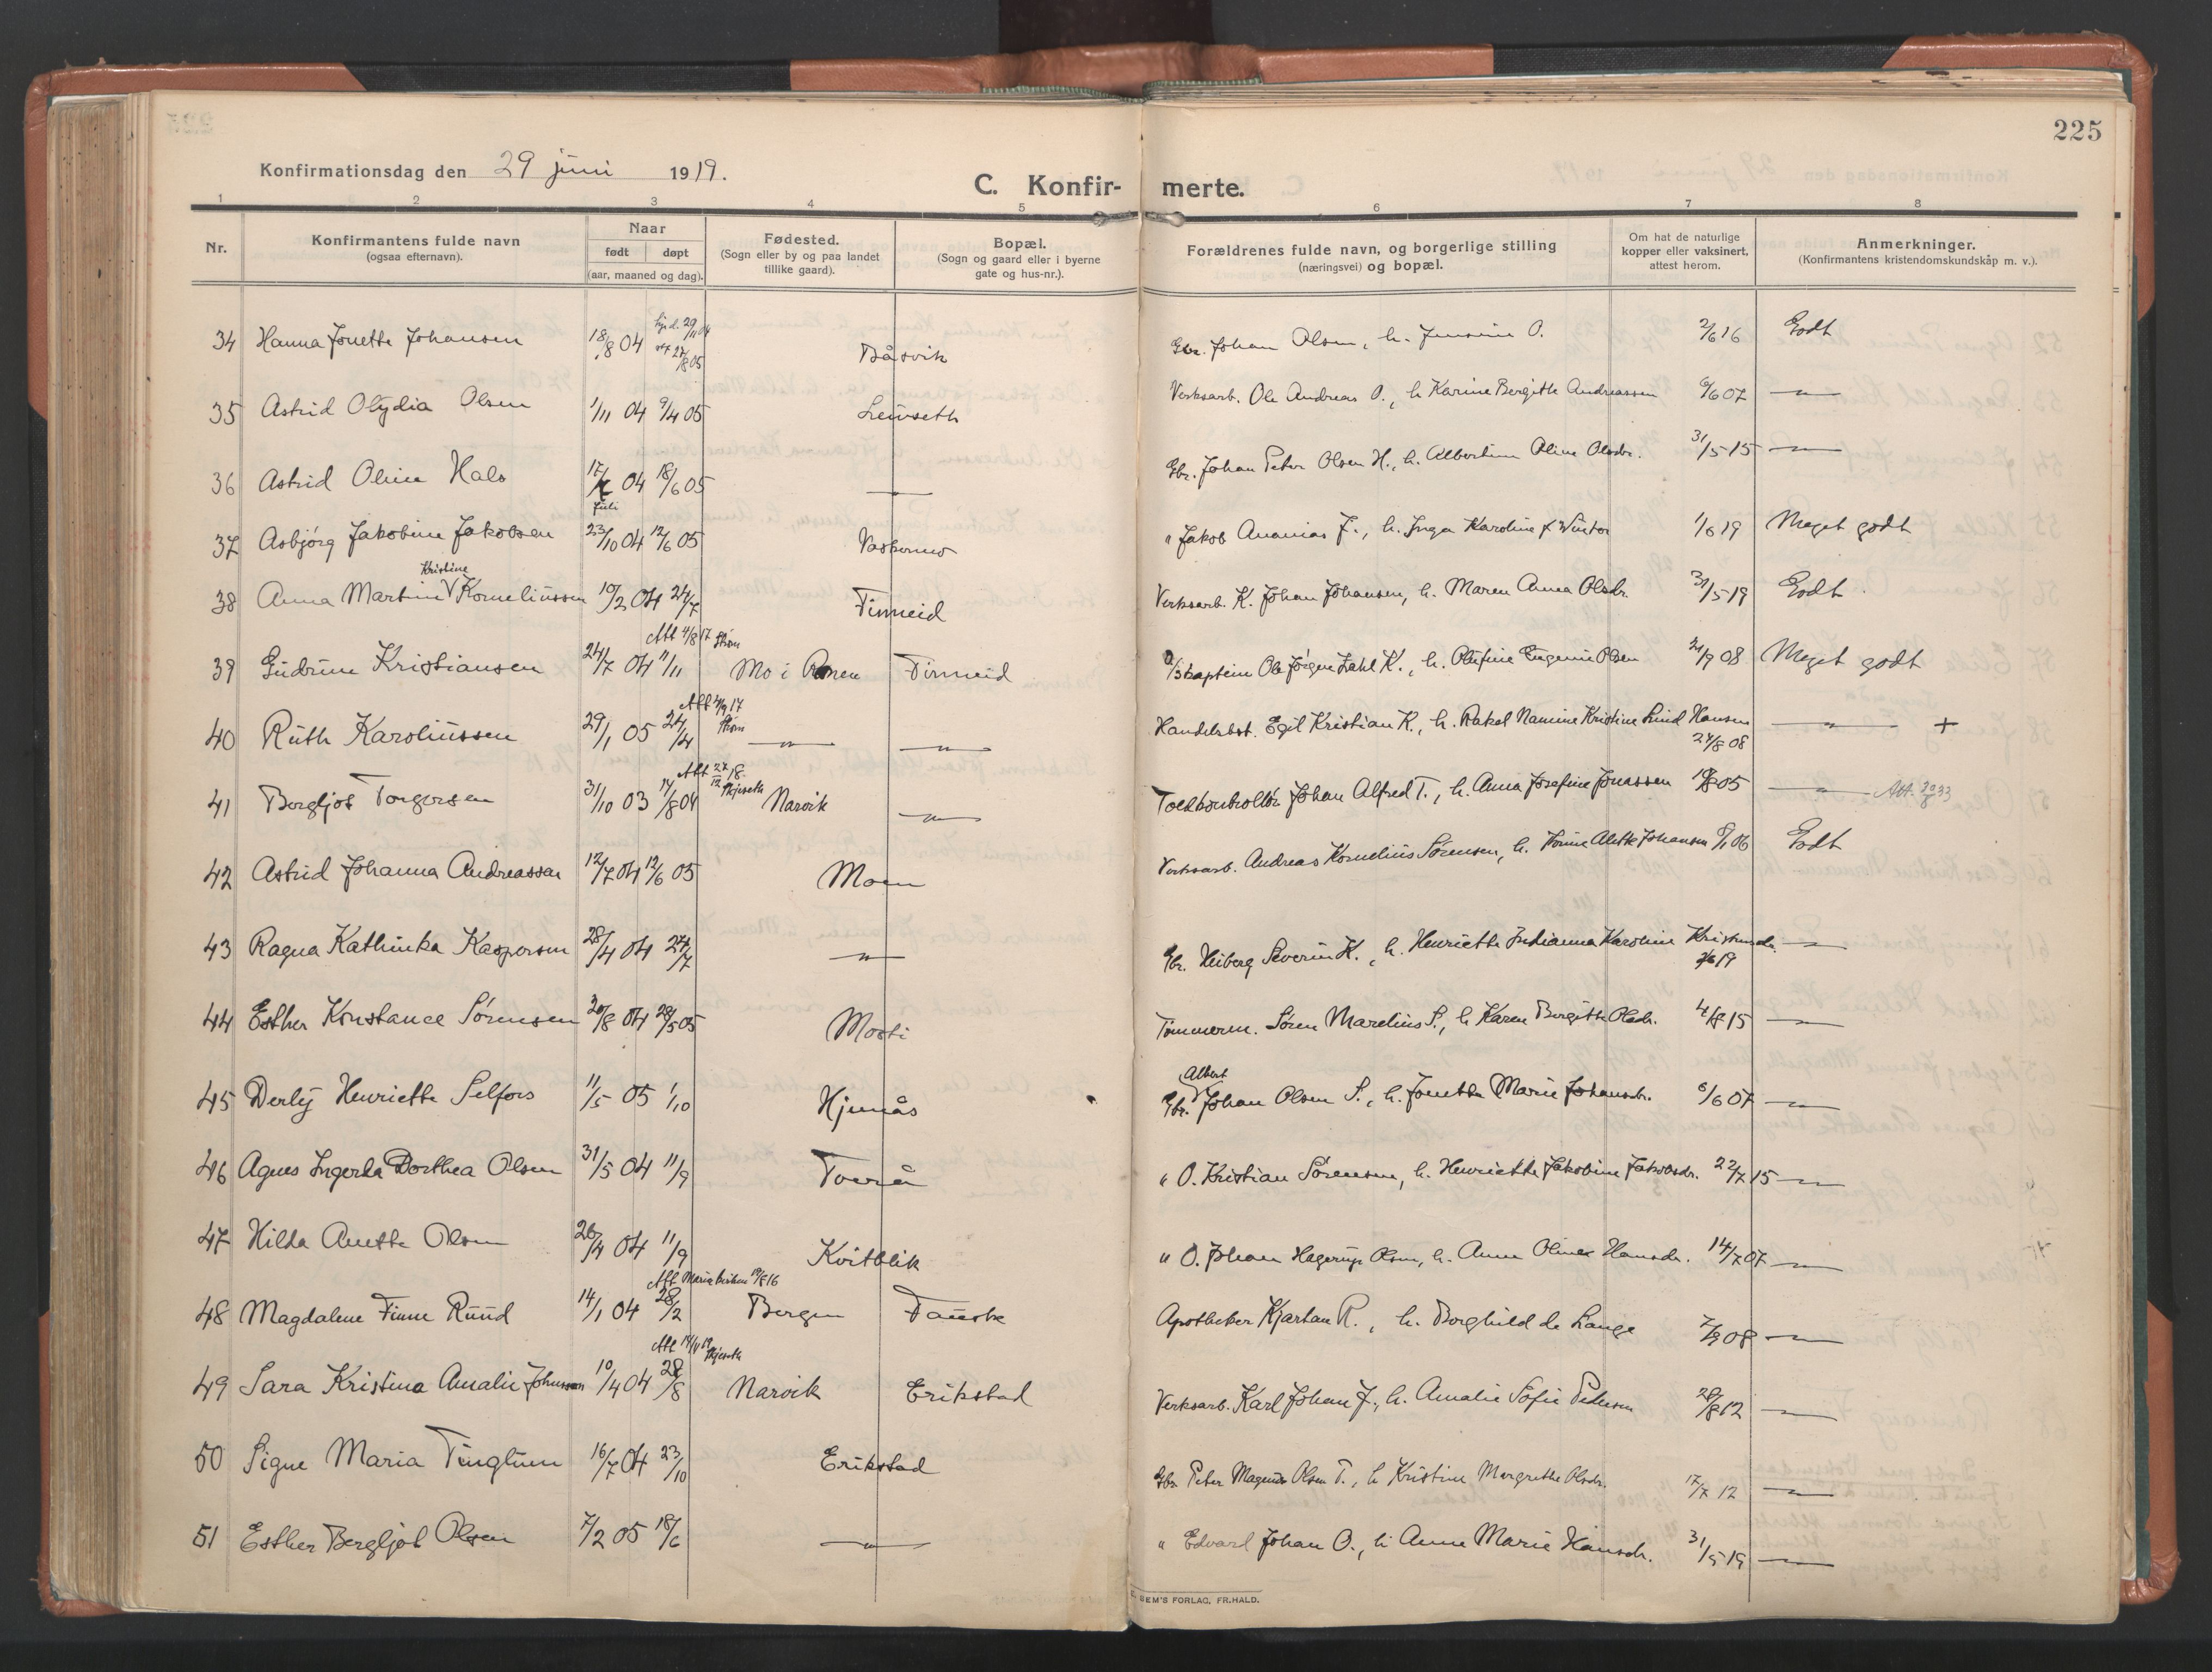 225
Konfirmationsdag den 29 juni 1919.
C. Konfir- merte.
1 2 3 4 5 6 7 8
Nr. Konfirmantens fulde navn (ogsaa efternavn). Naar født døpt (aar, maaned og dag). Fødested. (Sogn eller by og paa landet tillike gaard). Bopæl. (Sogn og gaard eller i byerne gate og hus-nr.). Forældrenes fulde navn, og borgerlige stilling (næringsvei) og bopæl. Om hat de naturlige kopper eller vaksinert, attest herom. Anmerkninger. (Konfirmantens kristendomskundskap m. v.).
34 Hanna Jonette Johansen 18/8 04 hjd. 29/11 04 27/8 05 Båsvik Gbr. Johan Olsen, h. Jensine O. 2/6 16 Godt
35 Astrid Olydia Olsen 1/11 04 9/4 05 Leivseth Verksarb. Ole Andreas O., h. Karine Bergitte Andreassen 6/6 07 —"—
36 Astrid Oline Hals 17/7 04 18/6 05 — Gbr. Johan Peter Olsen H., h. Albertine Oline Olsdr. 31/5 15 —"—
juli
37 Asbjørg Jakobine Jakobsen 23/10 04 12/6 05 Gbr " Jakob Ananias J., h. Inga Karoline f. Winter 1/6 19 Meget godt
38 Anna Martine Kristine Korneliussen 10/2 04 24/7 Finneid Verksarb. K. Johan Johansen, h. Maren Anna Olsdr. 31/5 19 Godt
39 Gudrun Kristiansen 24/7 04 11/11 Att 4/8 17 Strøm Mo i Ranen Finneid D/skaptein Ole Jørgen Zahl K., h. Olufine Eugenie Olsen 21/9 08 Meget godt
40 Ruth Karoliussen 29/1 05 24/4 Strøm —"— —"— Handelsbst. Egil Kristian K., h. Rakel Namine Kristine Lind Hansen 27/8 08 —"— +
41 Bergljot Torgersen 31/10 03 14/8 04 Att 27/12 18 Skjerseth Narvik —"— Toldkontrollør Johan Alfred T., h. Anna Josefine Jonassen 05 —"— Att. 20/8 33
42 Astrid Johanna Andreassen 12/7 04 12/6 05 Moen Verksarb. Andreas Kornelius Sørensen, h. Alette Johansen 06 Godt
43 Ragna Kathinka Kaspersen 28/4 04 24/7 —"— Gbr. Heiberg Severin K., h. Henriette Indianna Karoline Kristensdr. 19 —"—
44 Esther Konstance Sørensen 30/8 04 28/5 05 Mosti Tømmerm. Søren Marelius S., h. Karen Bergitte Olsdr. 4/8 15 —"—
45 Derly Henriette Selfors 11/5 05 1/10 Hjemås Gbr. Albert Johan Olsen S., h. Jonette Marie Johansdr. 6/6 07 —"—
46 Agnes Ingerda Dorthea Olsen 31/5 04 11/9 Tverå " O. Kristian Sørensen, h. Henriette Jakobine Jakobsdr. 22/7 15 —"—
47 Hilda Anette Olsen 26/4 04 11/9 Kvitblik " O. Johan Hagerup Olsen, h. Anne Oline Hansdr. 14/7 07 —"—
48 Magdalene Finne Ruud 14/1 04 28/2 Att Maria kirken 19/8 16 Bergen Fauske Apotheker Kjartan R., h. Borghild de Lange 7/9 08 —"—
49 Sara Kristina Amalie Johansen 10/4 04 28/8 Att Skjerseth Narvik Erikstad Verksarb. Karl Johan J., h. Amalie Sofie Pedersen 28/8 12 —"—
50 Signe Maria Tinglum 16/7 04 23/10 Erikstad Gbr. Peter Magnus Olsen T., h. Kristine Margrethe Olsdr. 17/7 12 —"—
51 Esther Bergljot Olsen 7/2 05 18/6 —"— " Edvard Johan O., h. Anne Marie Hansdr. 31/5 19 —"—
SEM'S FORLAG, FR.HALD.